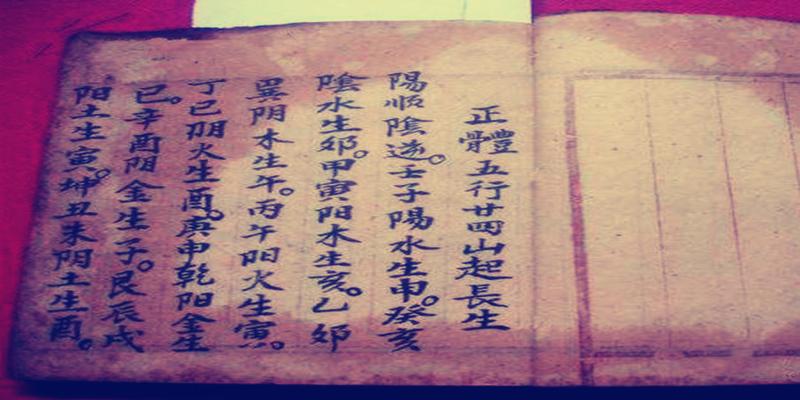 正體五行廿四山起長生
陽順陰逆。壬子陽水生申。癸亥
陰水生卯。甲寅阳木生亥。乙卯
巽阴木生午。丙午阳火生寅。
丁巳阴火生酉。庚申乾阳金生
巳。辛酉阴金生子。艮辰戌
阳土生寅。坤丑未阴土生酉。